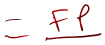 = FP